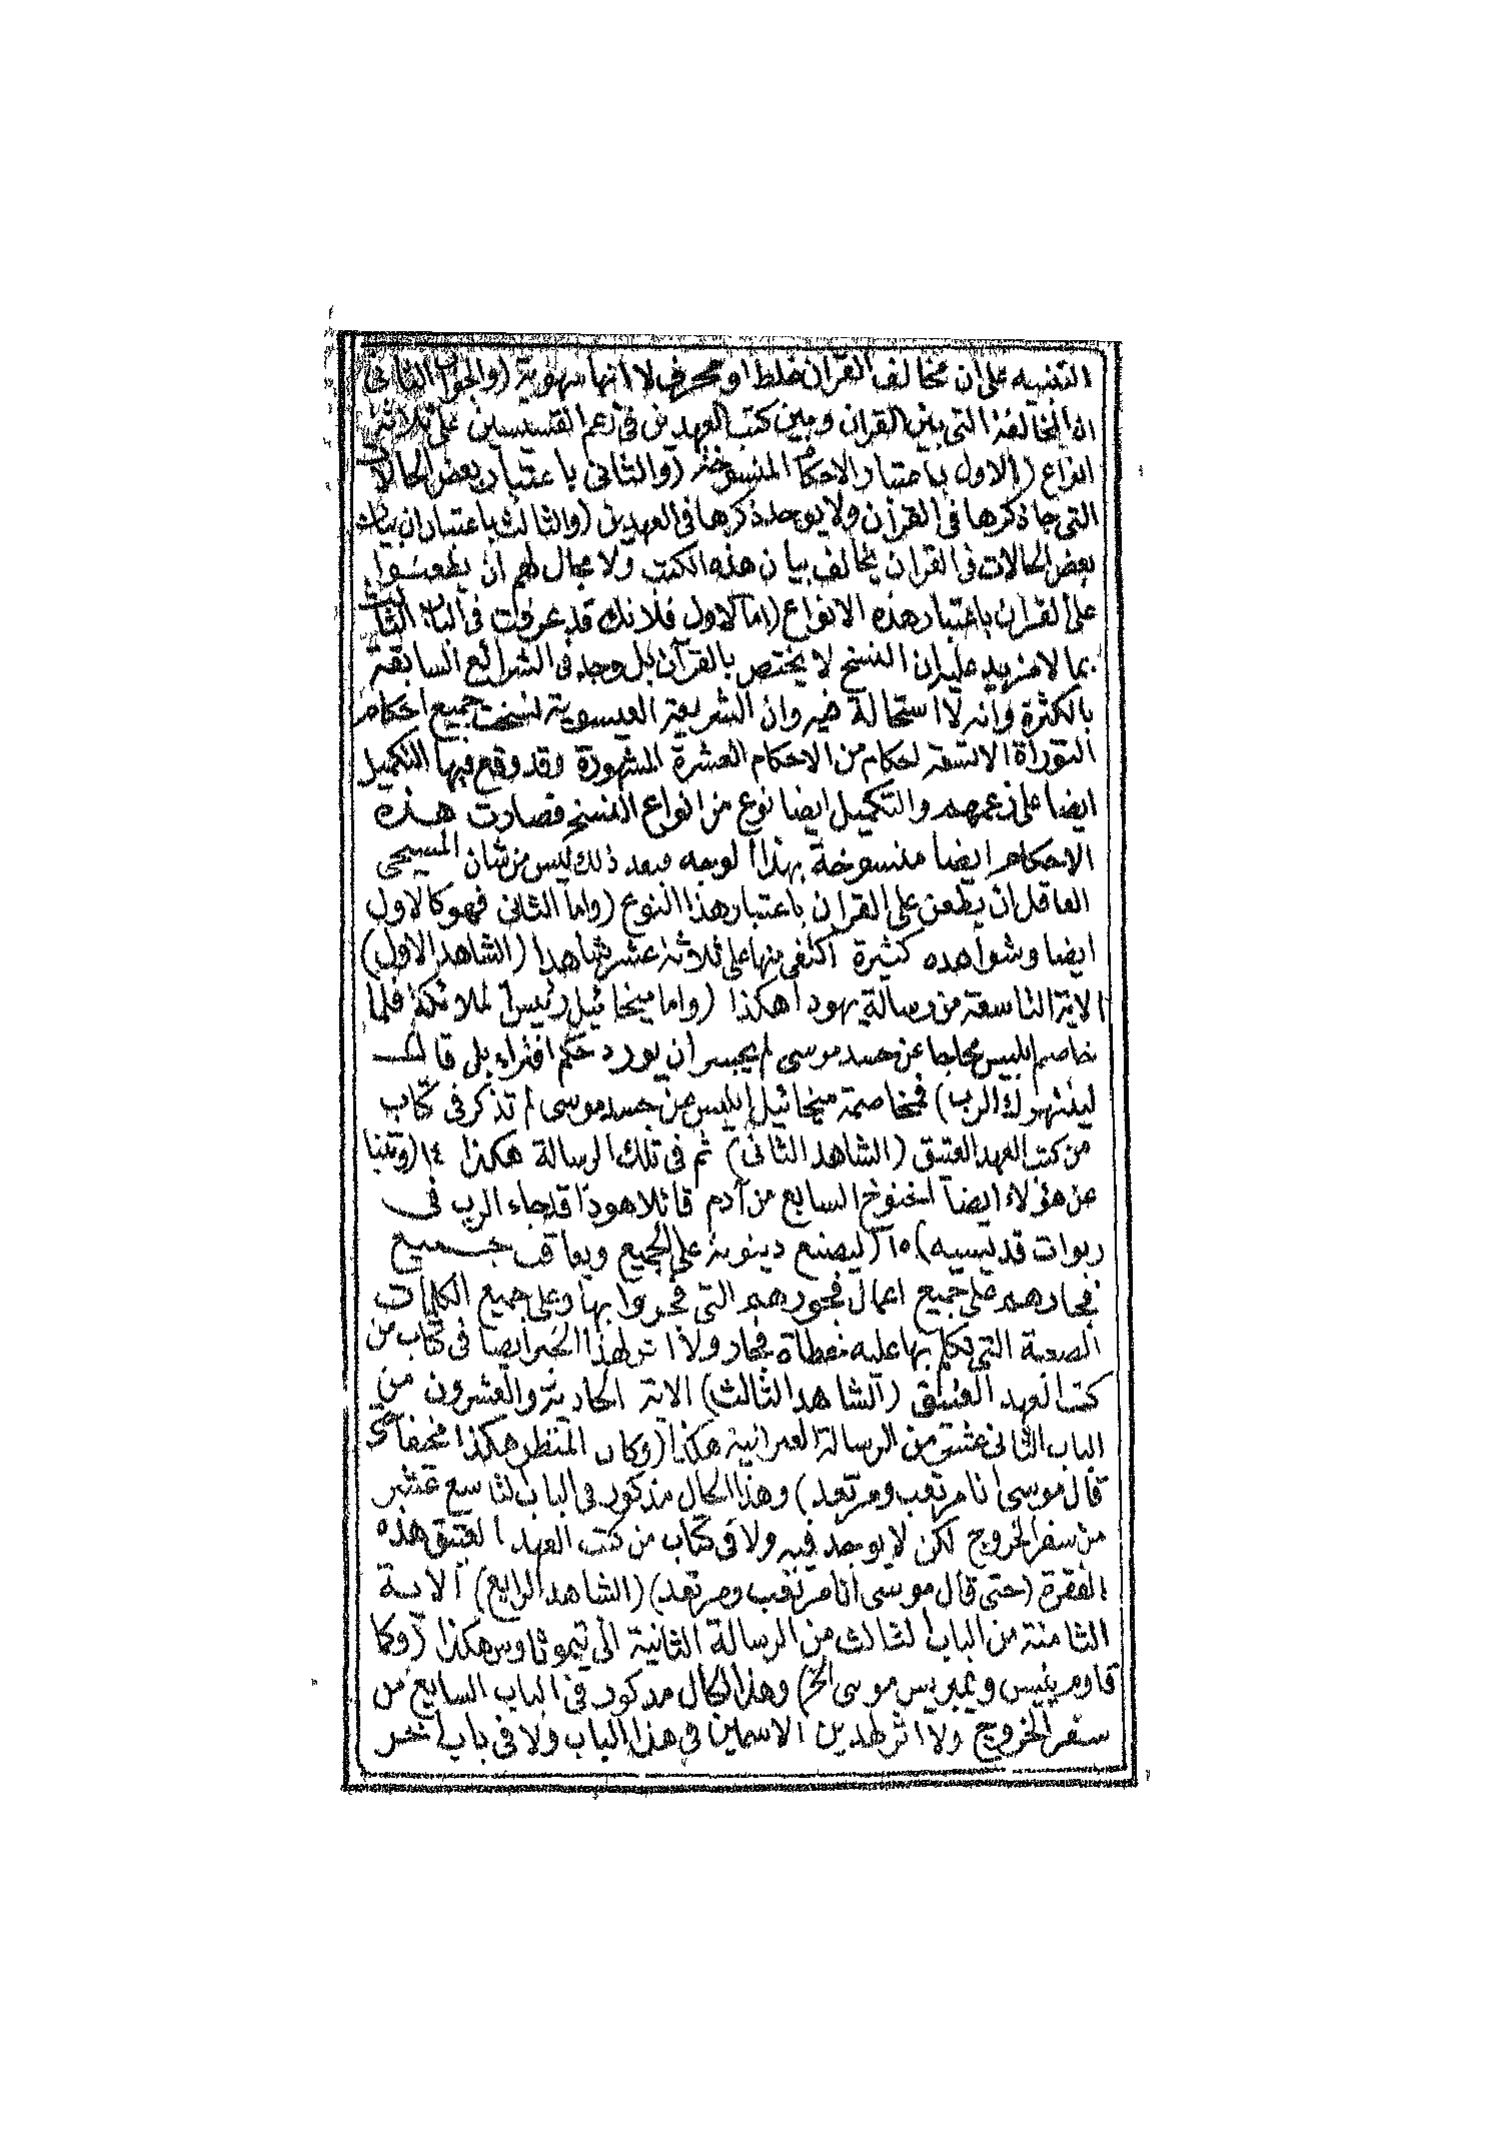 التنبيه على ان مخالف القرآن غلط او محرف لا انها سهوية (والجواب الثانى
ان المخالفة التى بين القرآن وبين كتب العهدين فى زعم القسيسين على ثلاثة
انواع (الاول باعتبار الاحكام المنسوخة (والثانى باعتبار بعض الحالات
التى جا ذكرها فى القرآن ولا يوجد ذكرها فى العهدين (والثالث باعتبار ان بيان
بعض الحالات فى القرآن يخالف بيان هذه الكتب ولا مجال لهم ان يطعنوا
على القرآن باعتبار هذه الانواع (اما الاول فلانك قد عرفت فى الباب الثالث
بما لا مزيد عليه ان النسخ لا يختص بالقرآن بل وجد فى الشرائع السابقة
بالكثرة وانه لا استحالة فيه وان الشريعة العيسوية نسخت جميع احكام
التوراة الا تسعة احكام من الاحكام العشرة المشهورة وقد وقع فيها التكميل
ايضا على زعمهم والتكميل ايضا نوع من انواع النسخ فصارت هذه
الاحكام ايضا منسوخة بهذا الوجه فبعد ذلك ليس من شان المسيحى
العاقل ان يطعن على القرآن باعتبار هذا النوع (واما الثانى فهو كالاول
ايضا وشواهده كثيرة اكتفى منها على ثلاثة عشر شاهدا (الشاهد الاول)
الاية التاسعة من رسالة يهودا هكذا (واما ميخائيل رئيس الملائكة فلما
خاصم ابليس محاجا عن جسد موسى لم يجسر ان يورد حكم افتراء بل قال
لينتهرك الرب) فمخاصمة ميخائيل ابليس عن جسد موسى لم تذكر فى كتاب
من كتب العهد العتيق (الشاهد الثانى) ثم فى تلك الرسالة هكذا ١٤ (وتنبا
عن هؤلاء ايضا اخنوخ السابع من آدم قائلا هوذا قد جاء الرب فى
ربوات قديسيه) ١٥ (ليصنع دينونة على الجميع ويعاقب جميع
فجارهم على جميع اعمال فجورهم التى فجروا بها وعلى جميع الكلمات
الصعبة التى تكلم بها عليه خطاة فجار ولا اثر لهذا الخبر ايضا فى كتاب من
كتب العهد العتيق (الشاهد الثالث) الاية الحادية والعشرون من
الباب الثانى عشر من الرسالة العبرانية هكذا (وكان المنظر هكذا مخيفا حتى
قال موسى انا مرتعب ومرتعد) وهذا الحال مذكور فى الباب التاسع عشر
من سفر الخروج لكن لا يوجد فيه ولا فى كتاب من كتب العهد العتيق هذه
الفقرة (حتى قال موسى انا مرتعب ومرتعد) (الشاهد الرابع) الاية
الثامنة من الباب الثالث من الرسالة الثانية الى تيموثاوس هكذا (وكما
قاوم ينيس ويمبريس موسى الخ) وهذا الحال مذكور فى الباب السابع من
سفر الخروج ولا اثر لهذين الاسمين فى هذا الباب ولا فى باب اخر